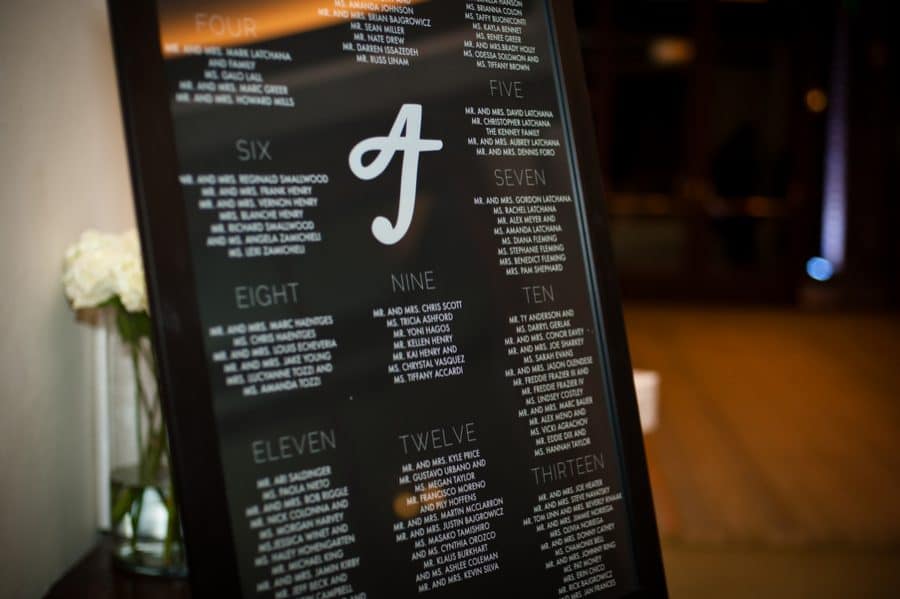 MS. AMANDA JOHNSON
MR. AND MRS. BRIAN BAJGROWICZ
MR. SEAN MILLER
MR. NATE DREW
MR. DARREN ISSAZEDEH
MR. RUSS LINAM
HANSON
MS. BRIANNA COLON
MS. TAFFY BUONICONTI
MS. KAYLA BENNET
MS. RENEE GREER
MR. AND MRS. BRADY HOLLY
MS. ODESSA SOLOMON AND
MS. TIFFANY BROWN
FOUR
MR. AND MRS. MARK LATCHANA
AND FAMILY
MS. GALO LALL
MR. AND MRS. MARC GREER
MR. AND MRS. HOWARD MILLS
AJ
FIVE
MR. AND MRS. DAVID LATCHANA
MR. CHRISTOPHER LATCHANA
THE KENNEY FAMILY
MR. AND MRS. AUBREY LATCHANA
MR. AND MRS. DENNIS FORO
SIX
MR. AND MRS. REGINALD SMALLWOOD
MR. AND MRS. FRANK HENRY
MR. AND MRS. VERNON HENRY
MRS. BLANCHE HENRY
MR. RICHARD SMALLWOOD
AND MS. ANGELA ZAMICHIELI
MS. LEXI ZAMICHIELI
SEVEN
MR. AND MRS. GORDON LATCHANA
MS. RACHEL LATCHANA
MR. ALEX MEYER AND
MS. AMANDA LATCHANA
MS. DIANA FLEMING
MS. STEPHANIE FLEMING
MRS. BENEDICT FLEMING
MRS. PAM SHEPHARD
EIGHT
MR. AND MRS. MARC HAENTGES
MS. CHRIS HAENTGES
MR. AND MRS. LOUIS ECHEVERIA
MR. AND MRS. JAKE YOUNG
MRS. LUCYANNE TOZZI AND
MS. AMANDA TOZZI
NINE
MR. AND MRS. CHRIS SCOTT
MS. TRICIA ASHFORD
MR. YONI HAGOS
MR. KELLEN HENRY
MR. KAI HENRY AND
MS. CHRYSTAL VASQUEZ
MS. TIFFANY ACCARDI
TEN
MR. TY ANDERSON AND
MS. DARRYL GERLAK
MR. AND MRS. CONOR EAVEY
MR. AND MRS. JOE SHARKEY
MS. SARAH EVANS
MR. AND MRS. JASON OLENDESE
MR. FREDDIE FRAZIER III AND
MR. FREDDIE FRAZIER IV
MS. LINDSEY COSTLEY
MR. AND MRS. MARC BAUER
MR. ALEX MENO AND
MS. VICKI AGRACHOV
MR. EDDIE DIX AND
MS. HANNAH TAYLOR
ELEVEN
MR. ARI SALDINGER
MS. PAOLA NIETO
MR. AND MRS. ROB RIGGLE
MR. NICK COLONNA AND
MS. MORGAN HARVEY
MS. JESSICA WINET AND
MS. HALEY HOHENGARTEN
MR. MICHAEL KING
MR. AND MRS. JAMIN KIRBY
MR. JEFF BECK AND
CAMPBELL
TWELVE
MR. AND MRS. KYLE PRICE
MR. GUSTAVO URBANO AND
MS. MEGAN TAYLOR
MR. FRANCISCO MORENO
AND PILY HOFFENS
MR. AND MRS. MARTIN MCCLARRON
MR. AND MRS. JUSTIN BAJGROWICZ
MS. MASAKO TAMISHIRO
AND MS. CYNTHIA OROZCO
MR. KLAUS BURKHART
AND MS. ASHLEE COLEMAN
MR. AND MRS. KEVIN SILVA
THIRTEEN
MR. AND MRS. JOE HEATER
MR. AND MRS. STEVE NAVATSKY
MR. TOM LINN AND MRS. BEVERLY KMAAK
MR. AND MRS. JIMMIE NORIEGA
MS. OLIVIA NORIEGA
MR. AND MRS. DONNY CATNEY
MS. CHARONIS BELL
MR. AND MRS. JOHNNY RING
MS. PAT MONEY
MRS. ERIN CHICO
MR. RICK BAJGROWICZ
AND MRS. JAN FRANCES